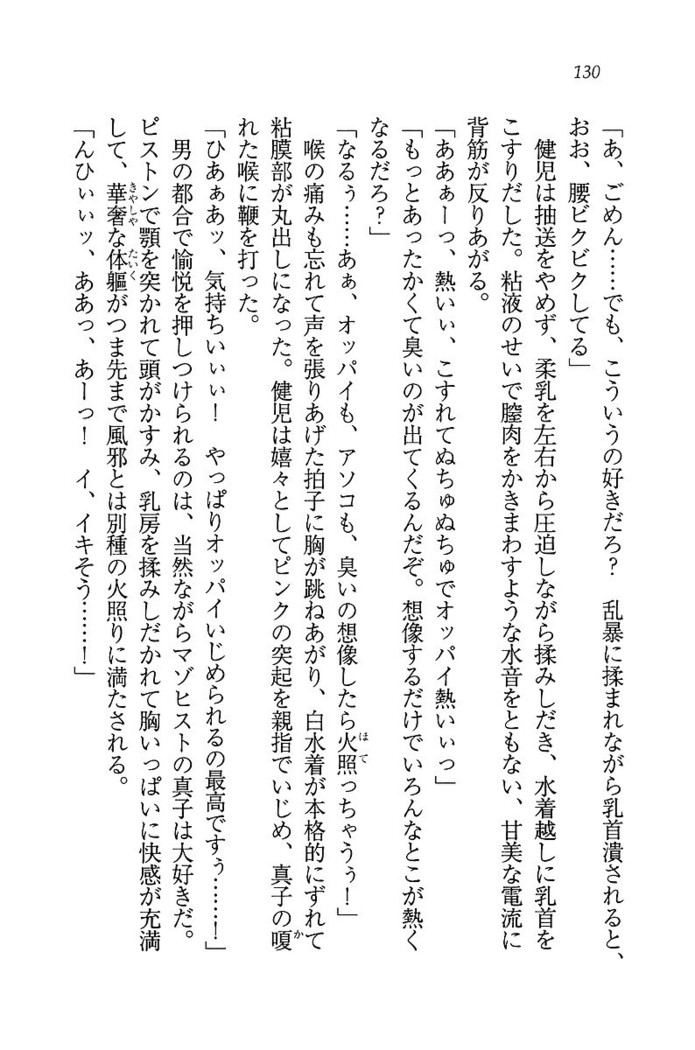 130
「あ、ごめん……でも、こういうの好きだろ？　乱暴に揉まれながら乳首潰されると、
おお、腰ビクビクしてる」
　健児は抽送をやめず、柔乳を左右から圧迫しながら揉みしだき、水着越しに乳首を
こすりだした。粘液のせいで膣肉をかきまわすような水音をともない、甘美な電流に
背筋が反りあがる。
「ああぁーっ、熱いぃ、こすれてぬちゅぬちゅでオッパイ熱いぃっ」
「もっとあったかくて臭いのが出てくるんだぞ。想像するだけでいろんなとこが熱く
なるだろ？」
「なるぅ……あぁ、オッパイも、アソコも、臭いの想像したら火照っちゃうぅ！」
　喉の痛みも忘れて声を張りあげた拍子に胸が跳ねあがり、白水着が本格的にずれて
粘膜部が丸出しになった。健児は嬉々としてピンクの突起を親指でいじめ、真子の嗄
れた喉に鞭を打った。
「ひあぁあッ、気持ちいぃぃ！　やっぱりオッパイいじめられるの最高ですぅ……！」
　男の都合で愉悦を押しつけられるのは、当然ながらマゾヒストの真子は大好きだ。
ピストンで顎を突かれて頭がかすみ、乳房を揉みしだかれて胸いっぱいに快感が充満
して、華奢な体軀がつま先まで風邪とは別種の火照りに満たされる。
「んひぃぃッ、ああっ、あーっ！　イ、イキそう……！」